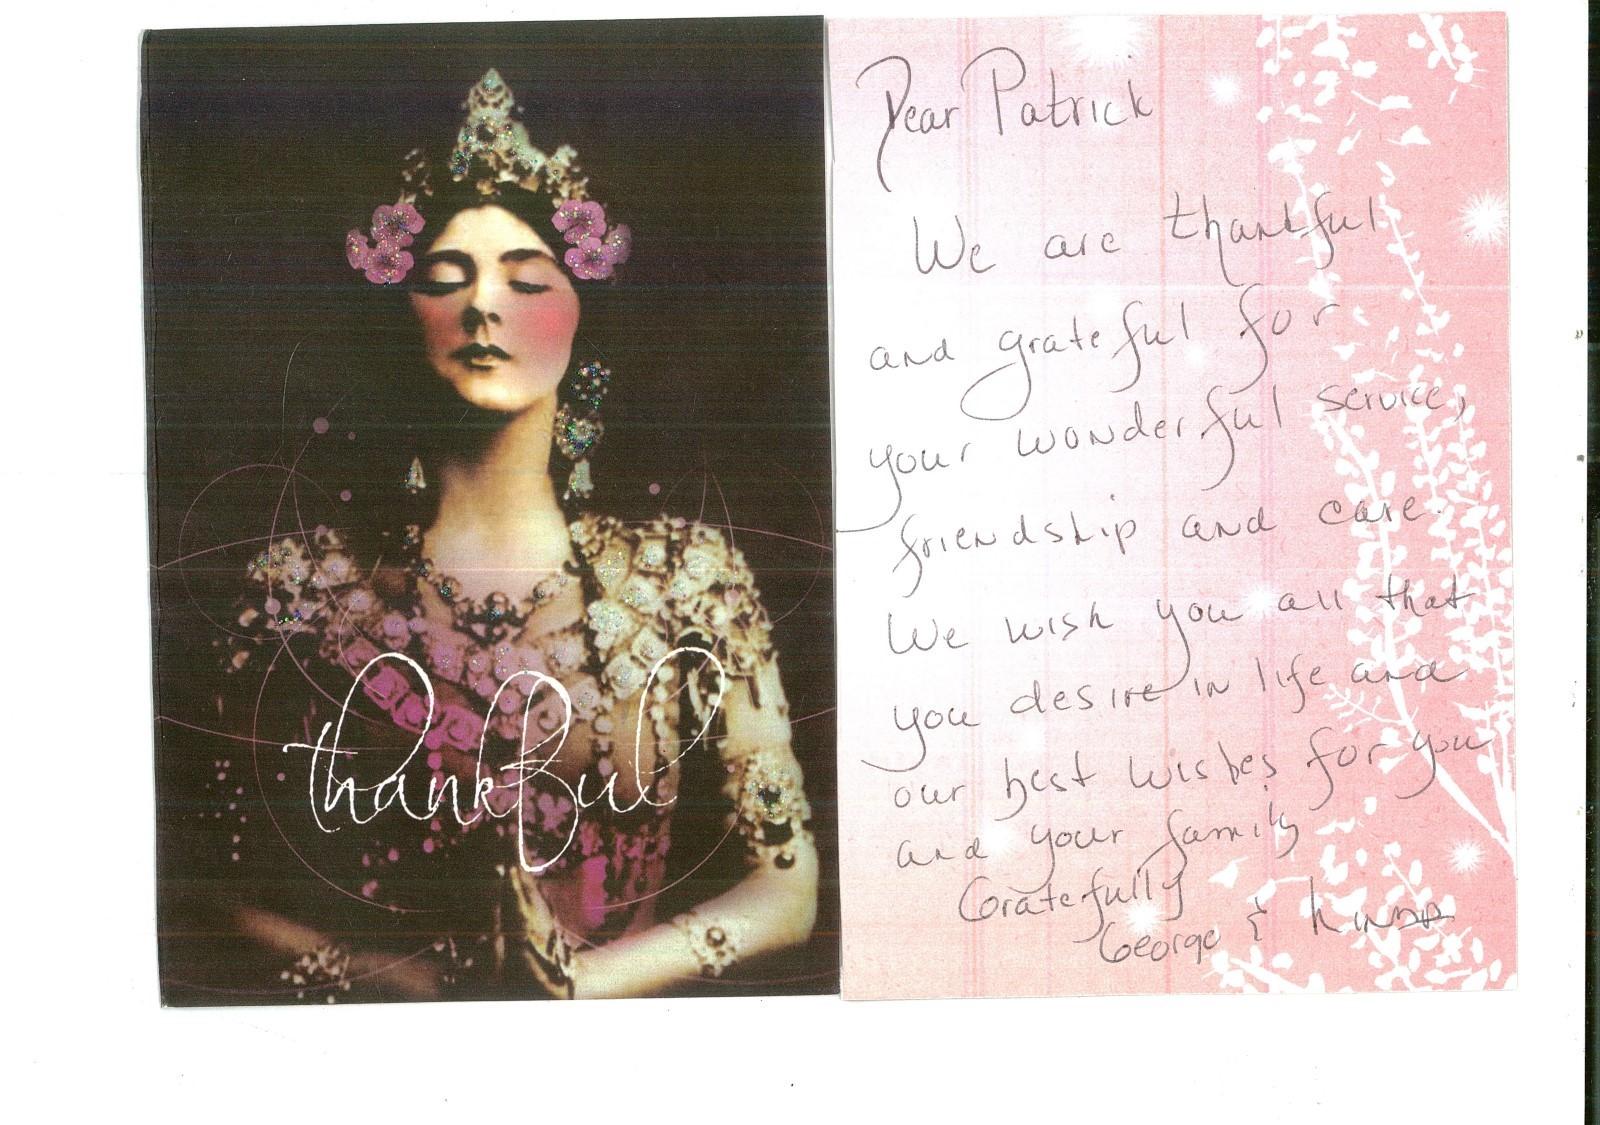 thankful
Dear Patrick
We are thankful
and grateful for
your wonderful service,
friendship and care.
We wish you all that
you desire in life and
our best wishes for you
and your family
Gratefully
George &